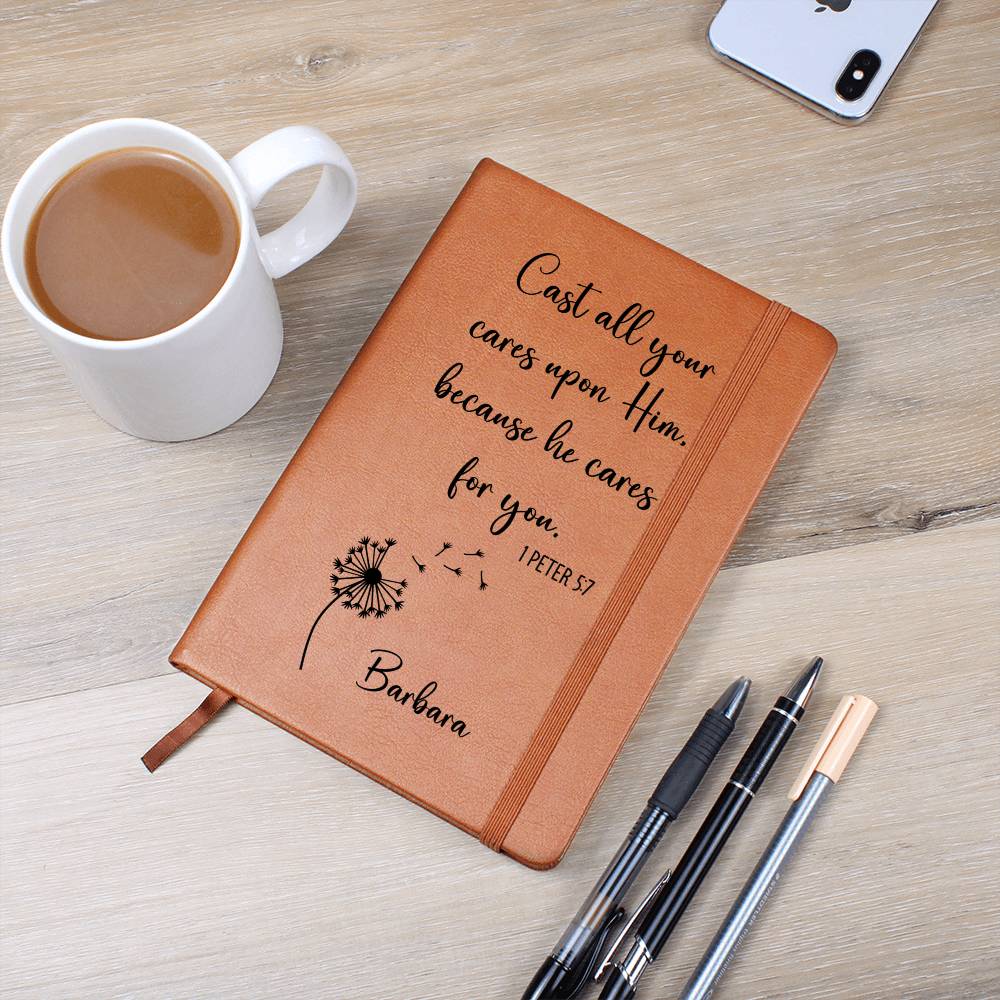 Cast all your
cares upon Him,
because he cares
for you.
1 PETER 5:7
Barbara